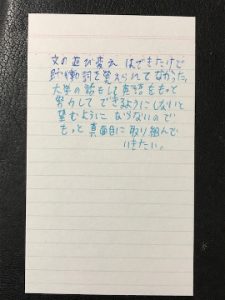 文の並び変え はできたけど
動詞を覚えられてなかった。
大学の話もして英語をもっと
努力してできるようにしないと
望むようにならないので
もっと真面目に取り組んで
いきたい。